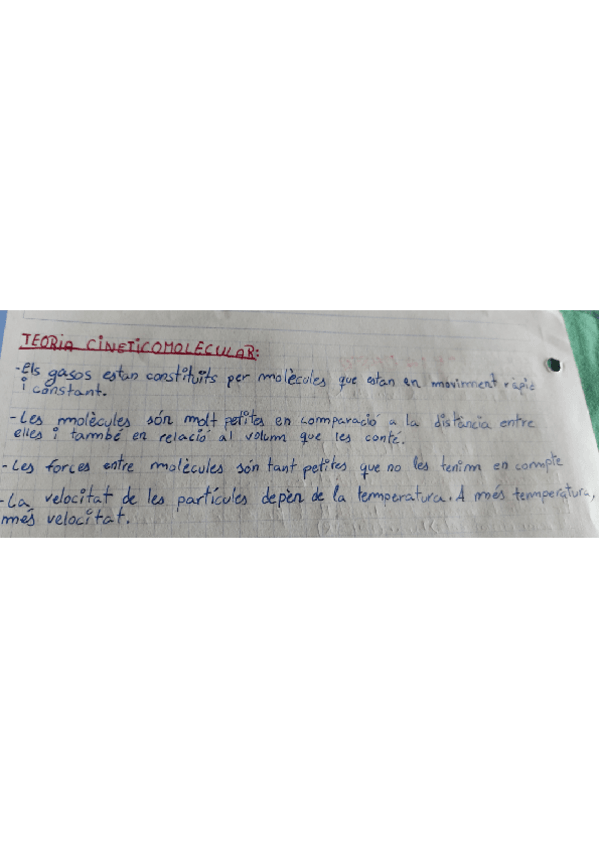 TEORIA CINETICOMOLECULAR:
-Els gasos estan constituïts per molècules que estan en moviment ràpid
i constant.
-Les molècules són molt petites en comparació a la distància entre
elles i també en relació al volum que les conté.
-Les forces entre molècules són tant petites que no les tenim en compte
-La velocitat de les partícules depèn de la temperatura. A més temperatura,
més velocitat.